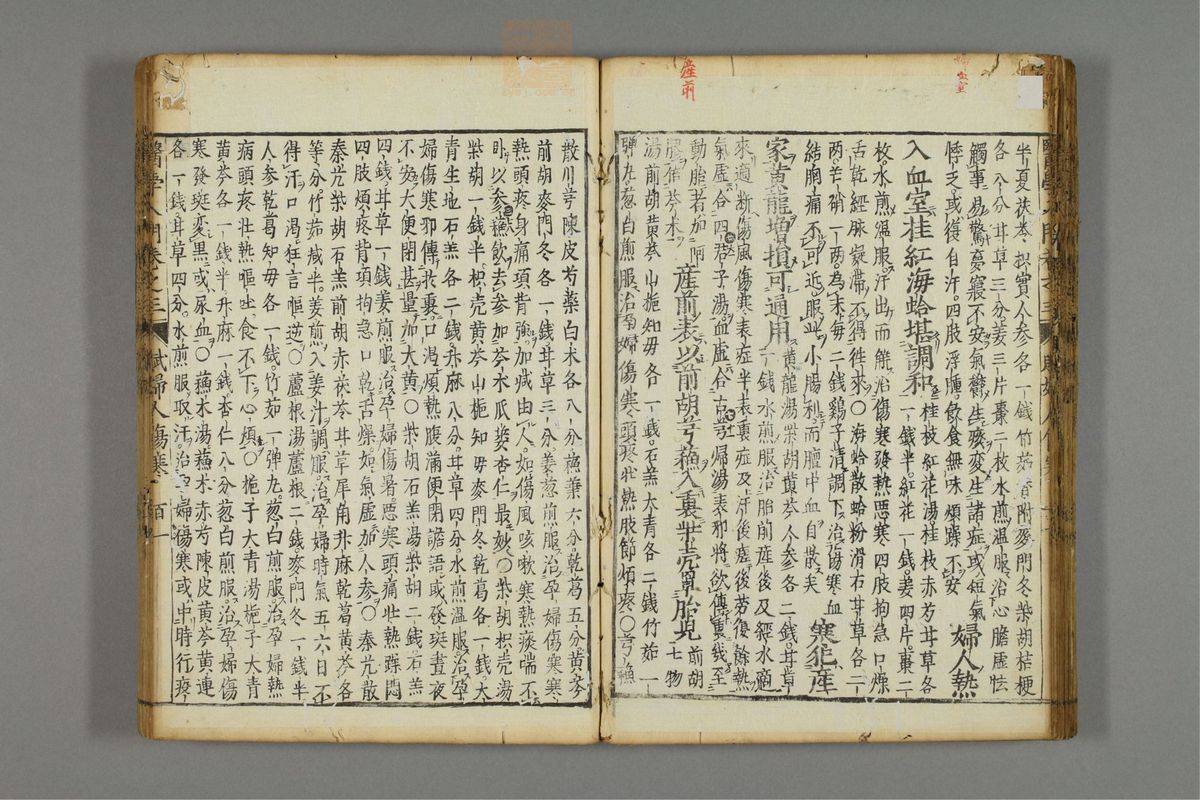 產前
半夏茯苓枳實人參各一錢竹茹香附麥門冬柴胡桔梗
各八分甘草三分姜三片棗二枚水煎溫服治心膽虛怯
觸事易驚夢寢不安氣鬱生痰變生諸症或短氣
悸乏或復自汗四肢浮腫飲食無味煩躁不安 婦人熱
入血室桂紅海蛤堪調和 桂枝紅花湯桂枝赤芍甘草各
一錢半紅花一錢姜四片棗二
枚水煎溫服汗出而解治傷寒發熱惡寒四肢拘急口燥
舌乾經脉凝滯不得徃來〇海蛤散蛤粉滑石甘草各二
兩芒硝一兩為末每二錢鷄子清調下治傷寒血
結胸痛不可近服此小腸利而膻中血自散矣 寒犯産
家黄龍增損可通用 黄龍湯柴胡黄芩人參各二錢甘草
一錢水煎服治胎前産後及經水適
來適斷傷風傷寒表症半表裏症及汗後瘧後劳復餘熱
氣虛合四君子湯血虛合芎歸湯表和將欲傳裏或至
動胎者加阿
膠佐芩术 産前表以前胡芎蘓入裏枳壳罩胎児 前胡
七物
湯前胡黄芩山梔知母各一錢石羔大青各二錢竹茹一
彈丸葱白煎服治孕婦傷寒頭疼壯熱肢節煩疼〇芎蘓
散川芎陳皮芍藥白术各八分蘓葉六分乾葛五分黄芩
前胡麥門冬各一錢甘草三分姜葱煎服治孕婦傷寒寒
熱頭疼身痛項背強加减由人如傷風咳嗽寒熱痰喘不
卧以參蘓飲去參加芩术瓜蔞杏仁最妙〇柴胡枳壳湯
柴胡一錢半枳壳黄芩山梔知母麥門冬乾葛各一錢大
青生地石羔各二錢升麻八分甘草四分水煎溫服治孕
婦傷寒邪傳於裏口渴煩熱腹滿便閉譫語或發斑晝夜
不安大便閉甚量加大黄〇柴胡石羔湯柴胡二錢石羔
四錢甘草一錢姜煎服治孕婦傷暑惡寒頭痛壯熱躁悶
四肢煩疼背項拘急口乾舌燥如氣虛加人參〇秦艽散
秦艽柴胡石羔前胡赤茯苓甘草犀角升麻乾葛黄芩各
等分竹茹減半姜煎入姜汁調服治孕婦時氣五六日不
得汗口渴狂言嘔逆〇蘆根湯蘆根二錢麥門冬一錢半
人參乾葛知母各一錢竹茹一彈丸葱白煎服治孕婦熱
病頭疼壯熱嘔吐食不下心煩〇梔子大青湯梔子大青
黄芩各一錢半升麻一錢杏仁八分葱白煎服治孕婦傷
寒發斑変黒或尿血〇蘓木湯蘓木赤芍陳皮黄芩黄連
各一錢甘草四分水煎服取汗治孕婦傷寒或中時行疫
醫學入門卷之三 賦婦人傷寒 百一